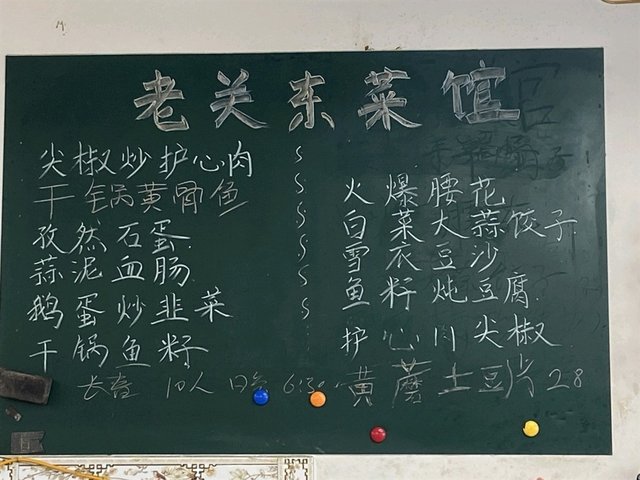 老关东菜馆
尖椒炒护心肉
干锅黄骨鱼
孜然石蛋
蒜泥血肠
鹅蛋炒韭菜
干锅鱼籽
火爆腰花
白菜大蒜饺子
雪衣豆沙
鱼籽炖豆腐
护心肉尖椒
长春 10人 6:30
黄蘑土豆片 28